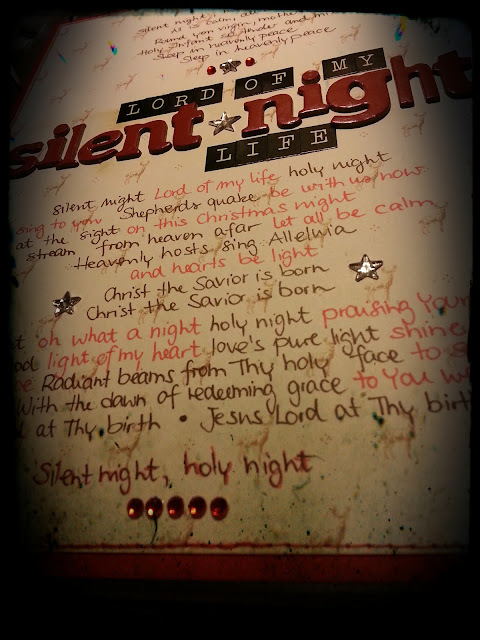 Silent night,
is calm, all
Round yon virgin, mother
Holy Infant so tender and mi
Sleep in heavenly peace
Sleep in heavenly peace
LORD OF MY
silent night
LIFE
Silent night Lord of my life holy night
to you Shepherds quake be with us now
at the sight on this Christmas night
stream from heaven afar let all be calm
Heavenly hosts sing Alleluia
and hearts be light
Christ the Savior is born
Christ the Savior is born
oh what a night holy night praising Your
light of my heart love's pure light shine
Radiant beams from Thy holy face to
With the dawn of redeeming grace to You
at Thy birth • Jesus Lord at Thy birt
Silent night, holy night